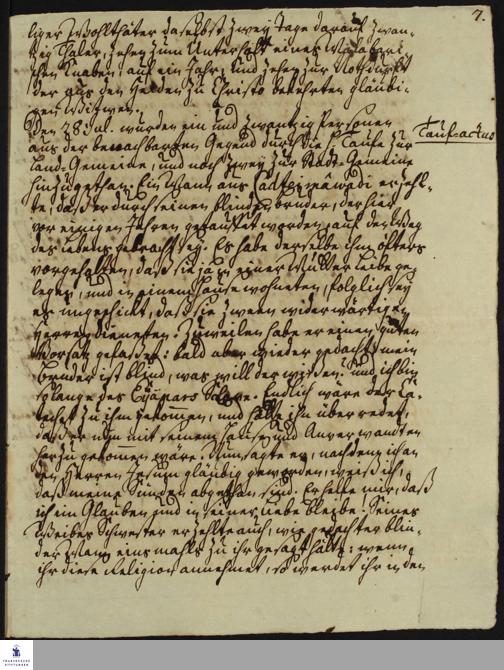 7.
liger Wohlthäter daselbst zwey Tage darauf zwan-
zig Thaler, zehen zum Unterhalt eines Malabari-
schen Knaben, auf ein Jahr, und zehen zur Nothdurft
der aus den Heiden zu Christo bekehrten gläubi-
gen Witwen.
Den 28 Jul. wurden ein und zwantzig Personen
Taufactus
aus der benachbarten Gegend durch die H. Taufe zur
Land-Gemeine, und noch zwey zur Stadt-Gemeine
hinzugethan. Ein Mann aus erzehl-
te, daß er durch seinen blinden bruder, der hier
vor einigen Jahren getauffet worden, auf den Weg
des Lebens gebracht sey. Es habe derselbe ihm öfters
vorgehalten, daß sie ja in einer Mutter Leibe ge-
legen, und in einem Hause wohneten, folglich sey
es ungeschickt, daß sie zween widerwärtigen
Herren dieneten. Zuweilen habe er einen guten
Vorsatz gefasset: bald aber wieder gedacht: mein
bruder ist blind, was will der wissen? und ich bin
so lange des Sclave. Endlich wäre der Ca-
techet zu ihm gekommen, und habe ihn überredet,
daß er nun mit seinem Hause und Anverwandten
herzu gekommen wäre. Nun sagte er, nachdem ich an
den Herren Jesum gläubig geworden, weiß ich,
daß meine Sünden abgethan sind. Er helfe mir, daß
ich ein Glauben und in seiner Liebe bleibe. Seines
Weibes Schwester erzehlte auch, wie gedachter blin-
der Mann einsmahls zu ihr gesagt hätte: wenn
ihr diese Religion annehmet, so werdet ihr in den
FRANCKESCHE
STIFTUNGEN